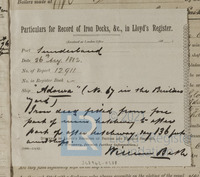 Particulars for Record of Iron Decks, &c., in Lloyd's Register.
Port, Sunderland
Date, 26 1882
No. of Report 12,911
No. in Register Book
Ship "Adowa" (No 67 in the Builders
Yard)
Iron deck fitted from fore
part of main hatchway to after
part of after hatchway, say 136 feet
William Bath